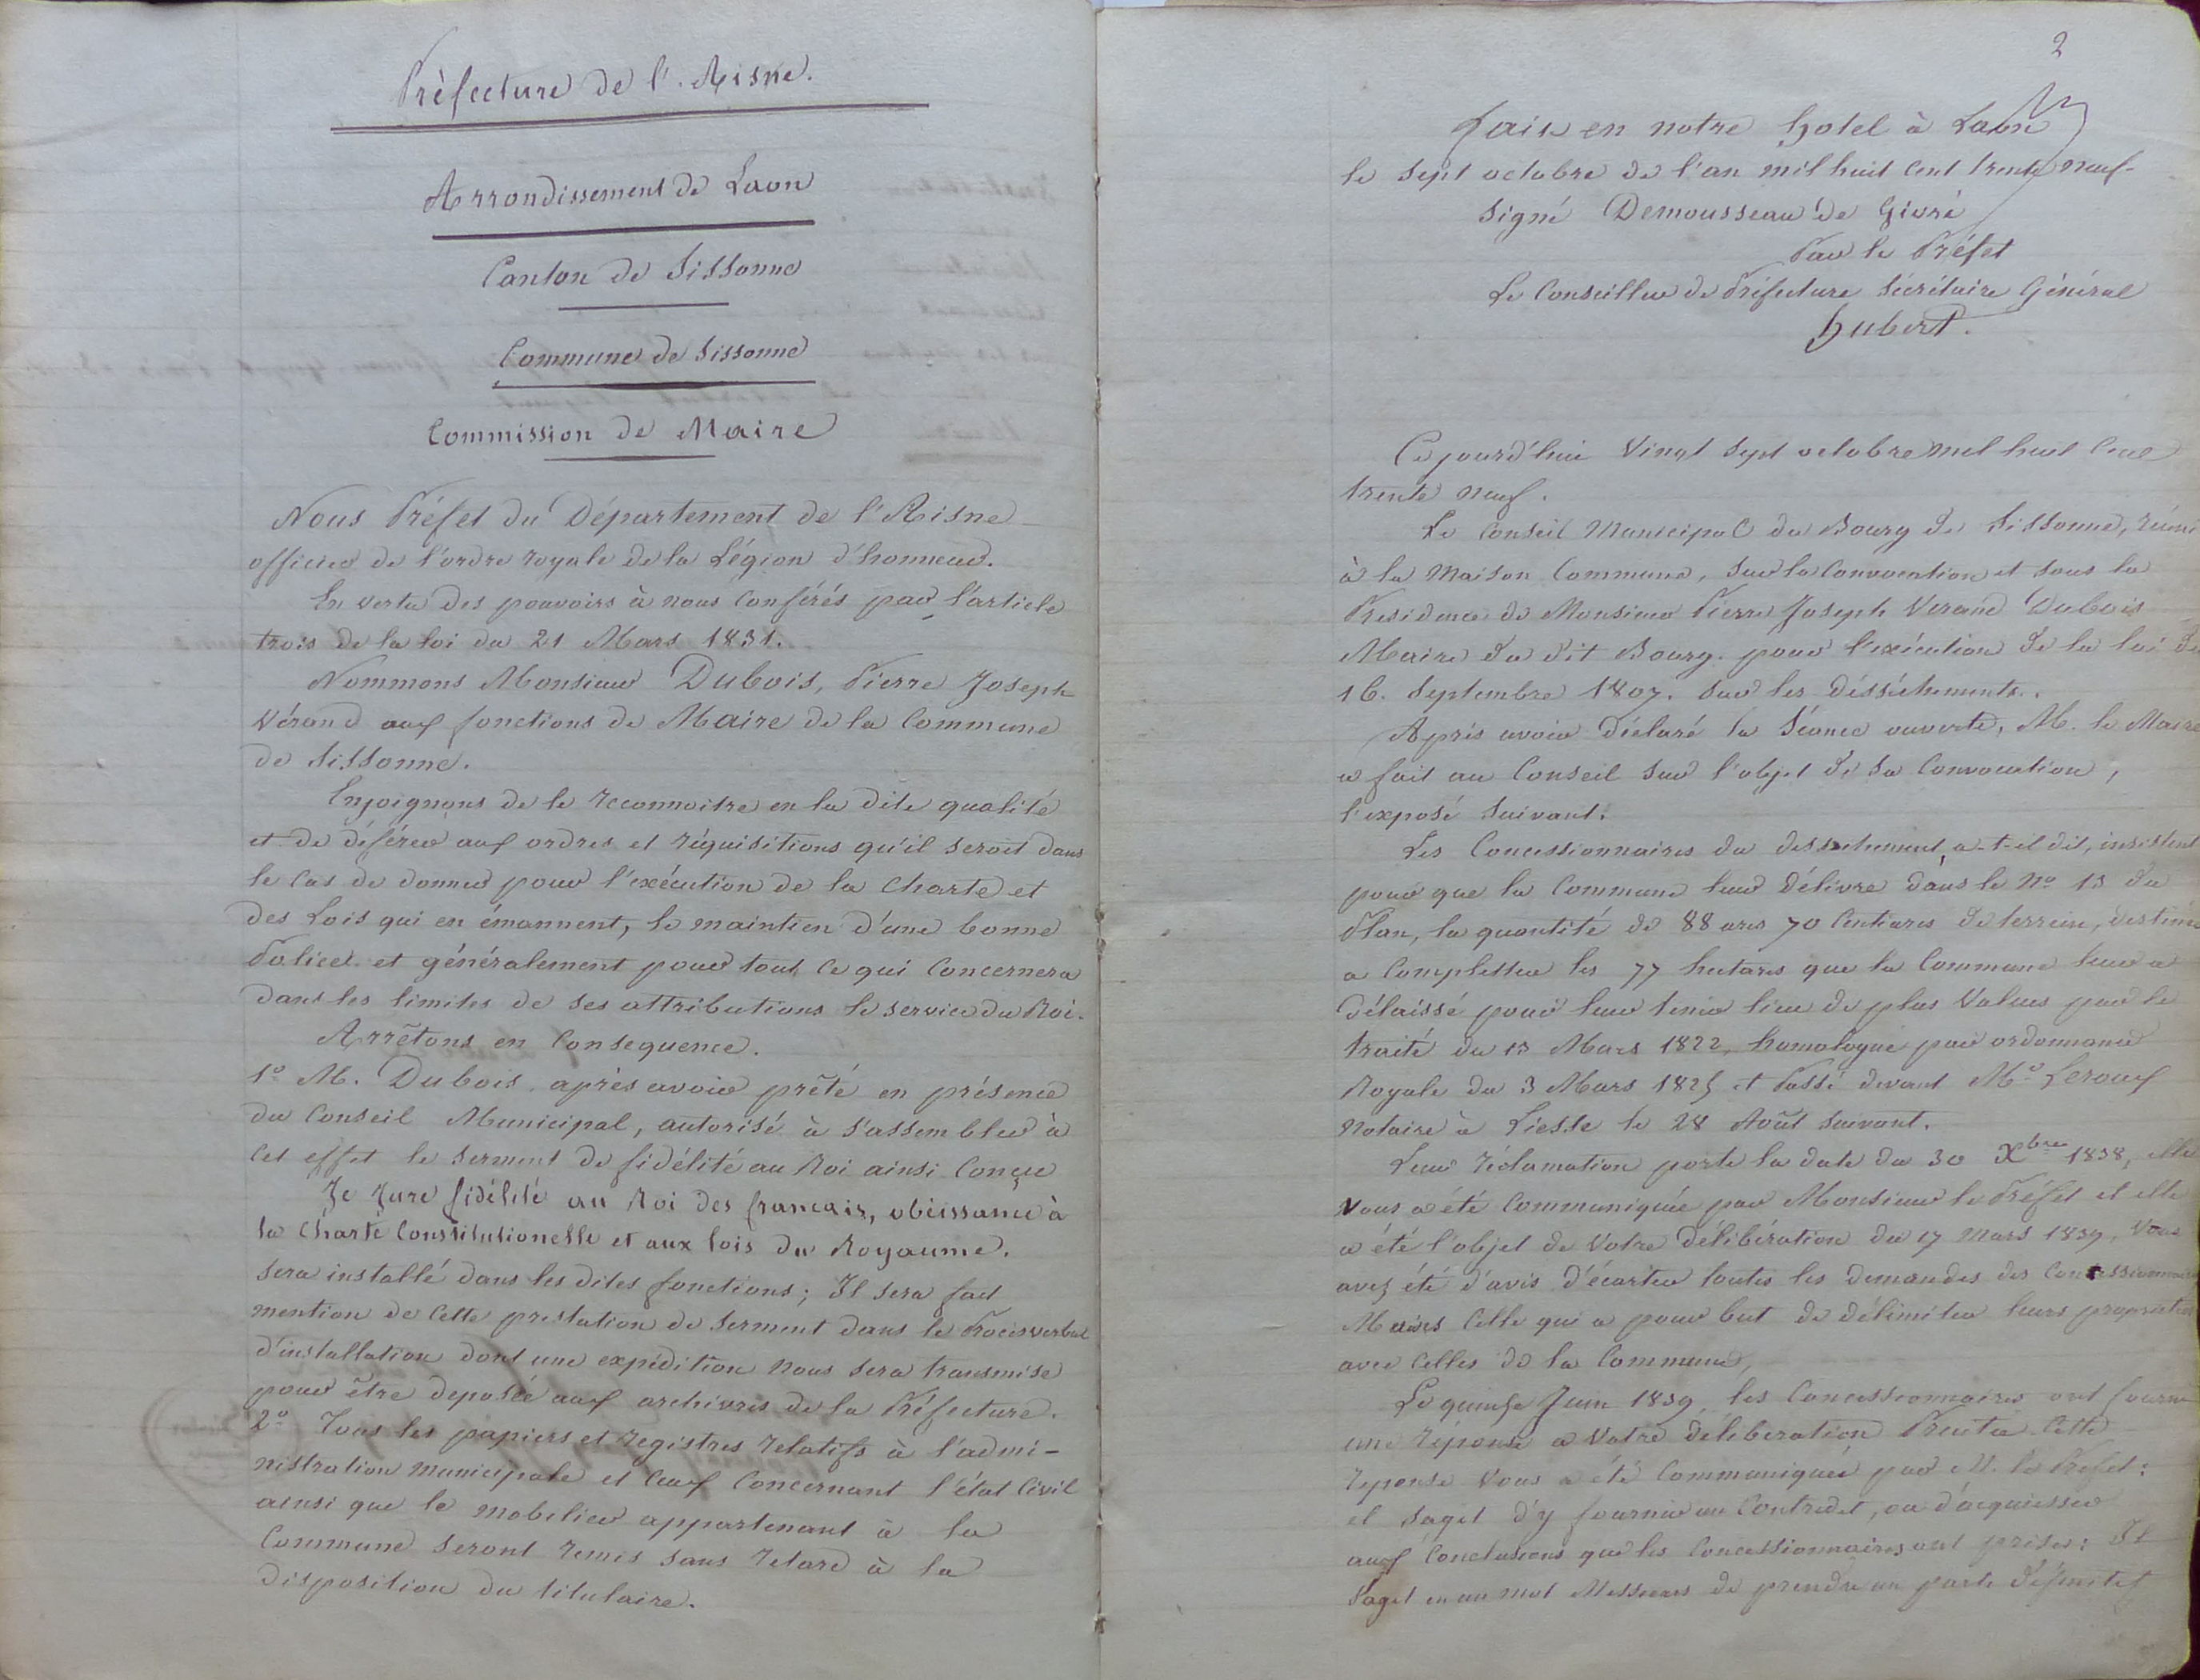 Préfecture de l'Aisne.
Arrondissement de Laon
Canton de Sissonne
Commune de Sissonne
Commission de Maire
Nous Préfet du Département de l'Aisne
officier de l'ordre royale de la Légion d'honneur.
En vertu des pouvoirs à nous conférés par l'article
trois de la loi du 21 Mars 1831.
Nommons Monsieur Dubois, Pierre Joseph
Vérand aux fonctions de Maire de la Commune
de Sissonne.
Enjoignons de le reconnoitre en la dite qualité
et de déférer aux ordres et réquisitions qu'il seroit dans
le cas de donner pour l'exécution de la Charte et
des Lois qui en émannent, le maintien d'une bonne
Police et généralement pour tout ce qui concernera
dans les limites de ses attributions le service du Roi.
Arrêtons en Consequence.
1º M. Dubois après avoir prêté en présence
du Conseil Municipal, autorisé à s'assembler à
cet effet le serment de fidélité au Roi ainsi conçu
Je Jure fidélité au Roi des français, obéissance à
la Charte Constitutionelle et aux lois du Royaume.
sera installé dans les dites fonctions; Il sera fait
mention de cette prestation de serment dans le Procès verbal
d'installation dont une expédition nous sera transmise
pour être deposée aux archives de la Préfecture.
2º Tous les papiers et registres relatifs à l'admi-
nistration municipale et ceux concernant l'état Civil
ainsi que le mobilier appartenant à la
Commune seront remis sans retard à la
disposition du titulaire.
2
fait en notre hotel à Laon
le sept octobre de l'an mil huit cent trente neuf.
signé Demousseau de Givré
Par le Préfet
Le Conseiller de Préfecture Sécrétaire Général
hubert.
Ce jourd'hui vingt sept octobre mil huit cent
trente neuf.
Le Conseil Municipal du Bourg de Sissonne, réuni
à la Maison Commune, sur la Convocation et sous la
Presidence de Monsieur Pierre Joseph Verand Dubois
Maire du dit Bourg. pour l'exécution de la loi du
16. Septembre 1807. sur les desséchements.
Après avoir déclaré la Séance ouverte, M. le Maire
a fait au Conseil sur l'objet de sa Convocation,
l'exposé suivant:
Les Concessionnaires du dessechement, a-t-il dit, insistent
pour que la Commune leur délivre dans le Nº 13 du
Plan, la quantité de 88 ares 70 Centiares de terrein, destinée
a completter les 77 hectares que la Commune leur a
délaissé pour leur tenir lieu de plus Values par le
traité du 13 Mars 1822, homologué par ordonnance
Royale du 3 Mars 1825 et Passé devant Mº Leroux
Notaire à Liesse le 28 Août suivant.
Leur réclamation porte la date du 30 Xbre 1838, elle
vous a été Communiquée par Monsieur le Préfet et elle
a été l'objet de votre délibération du 17 Mars 1839, Vous
avez été d'avis d'écarter toutes les demandes des Concessionnaires
Maires Celle qui a pour but de délimiter leurs propriétés
avec Celles de la Commune,
Le quinze Juin 1839, les Concessionnaires ont fourni
une réponse a Votre délibération Précitée Cette
reponse Vous a été Communiquée par M. le Préfet:
il sagit d'y fournir un Contredit, ou d'acquiesser
aux Conclusions que les Concessionnaires ont prises: Il
s'agit en un mot Messieurs de prendre un parti définitif